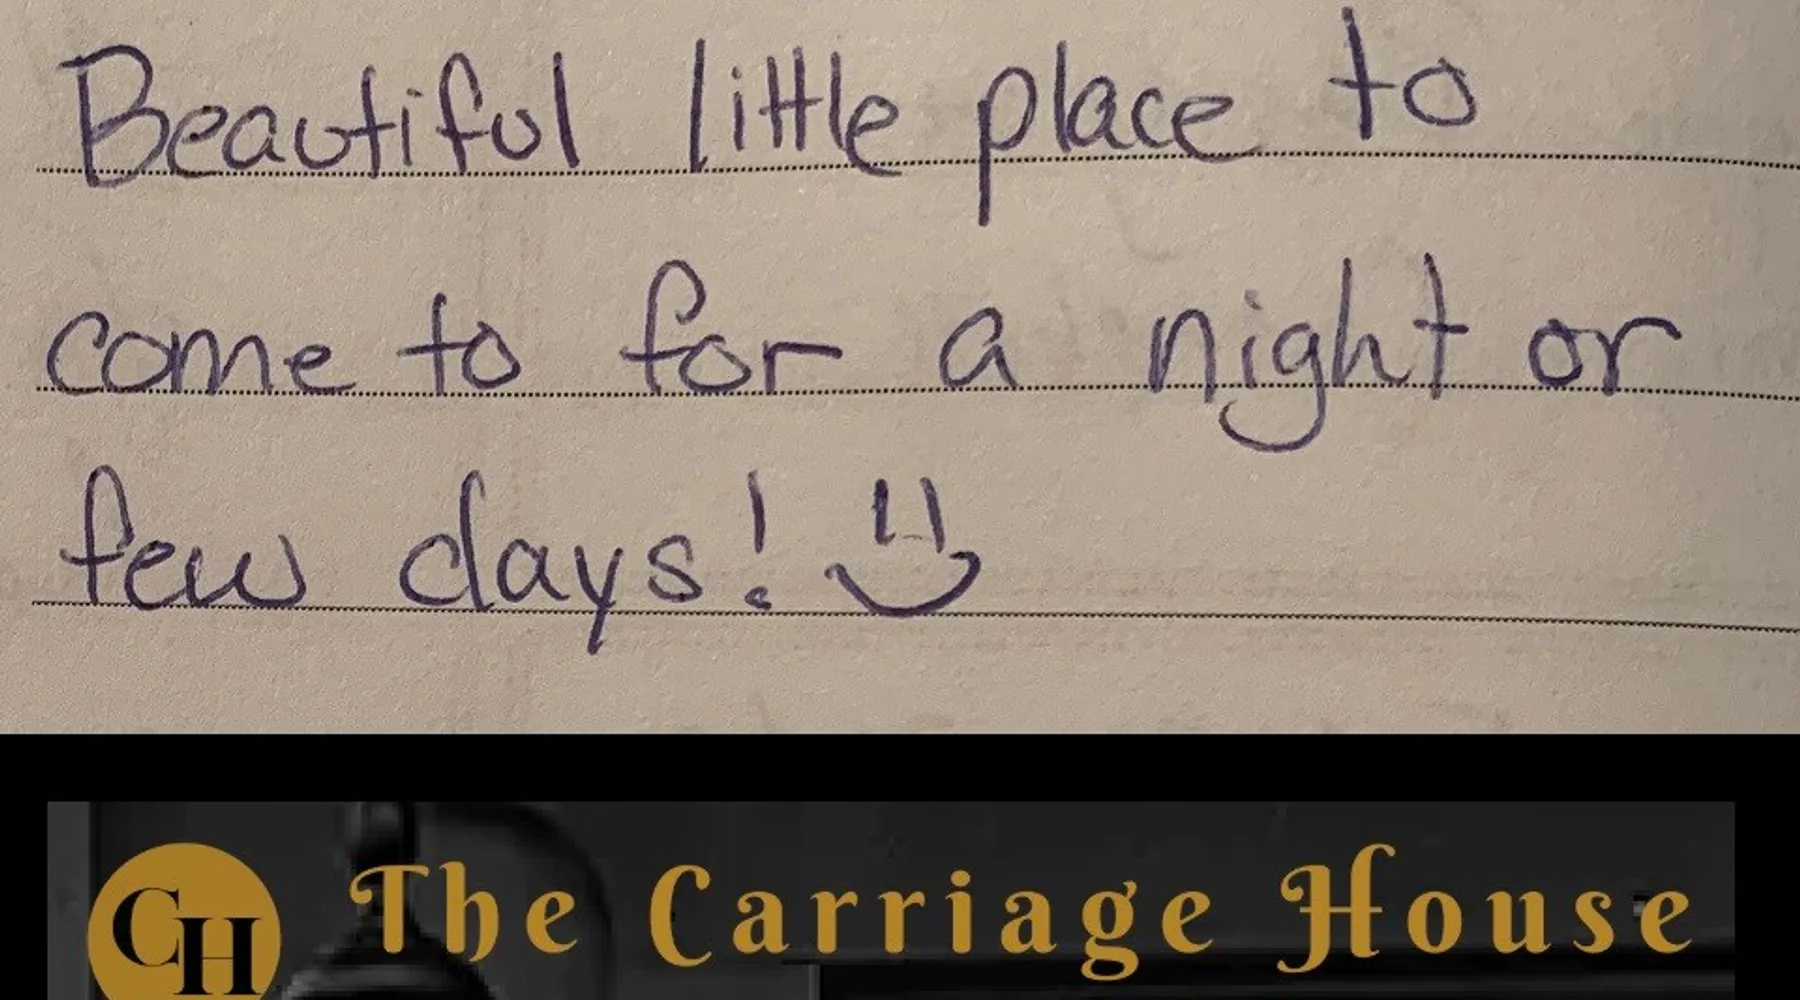 Beautiful little place to
come to for a night or
few days! :)
CH
The Carriage House